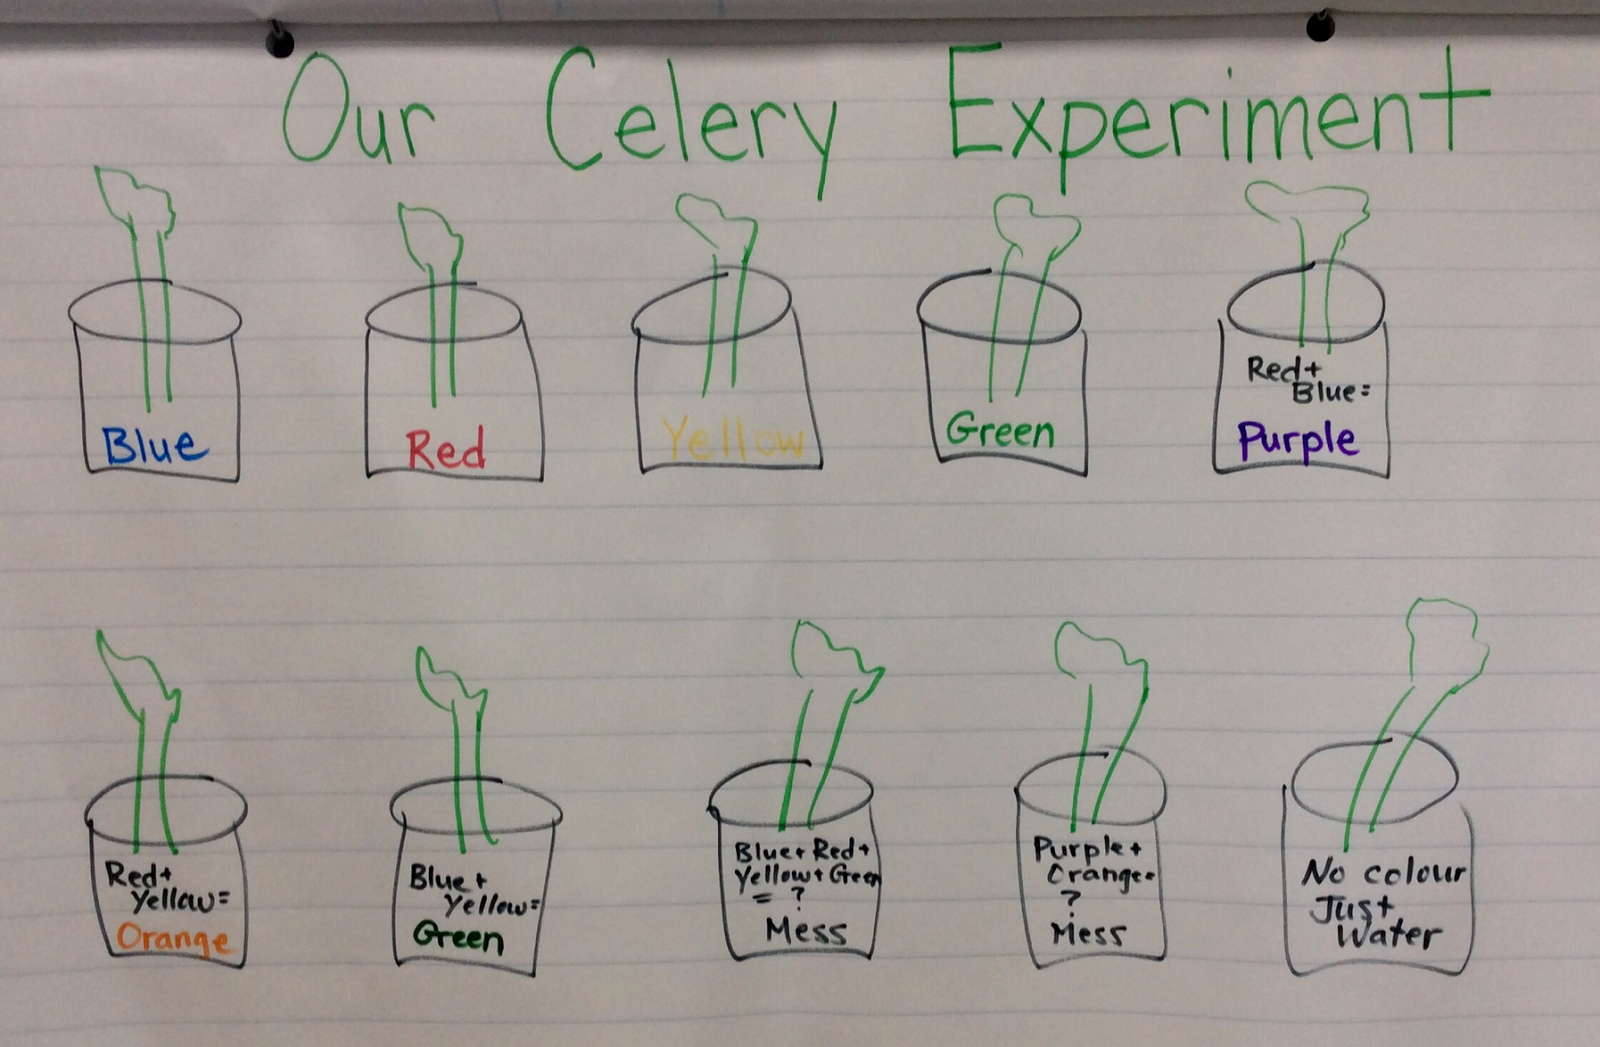 Our Celery Experiment
Blue
Red
Yellow
Green
Red+
Blue=
Purple
Red+
Yellow=
Orange
Blue+
Yellow=
Green
Blue+ Red+
Yellow+Green
= ?
Mess
Purple+
Orange=
?
Mess
No colour
Just
Water